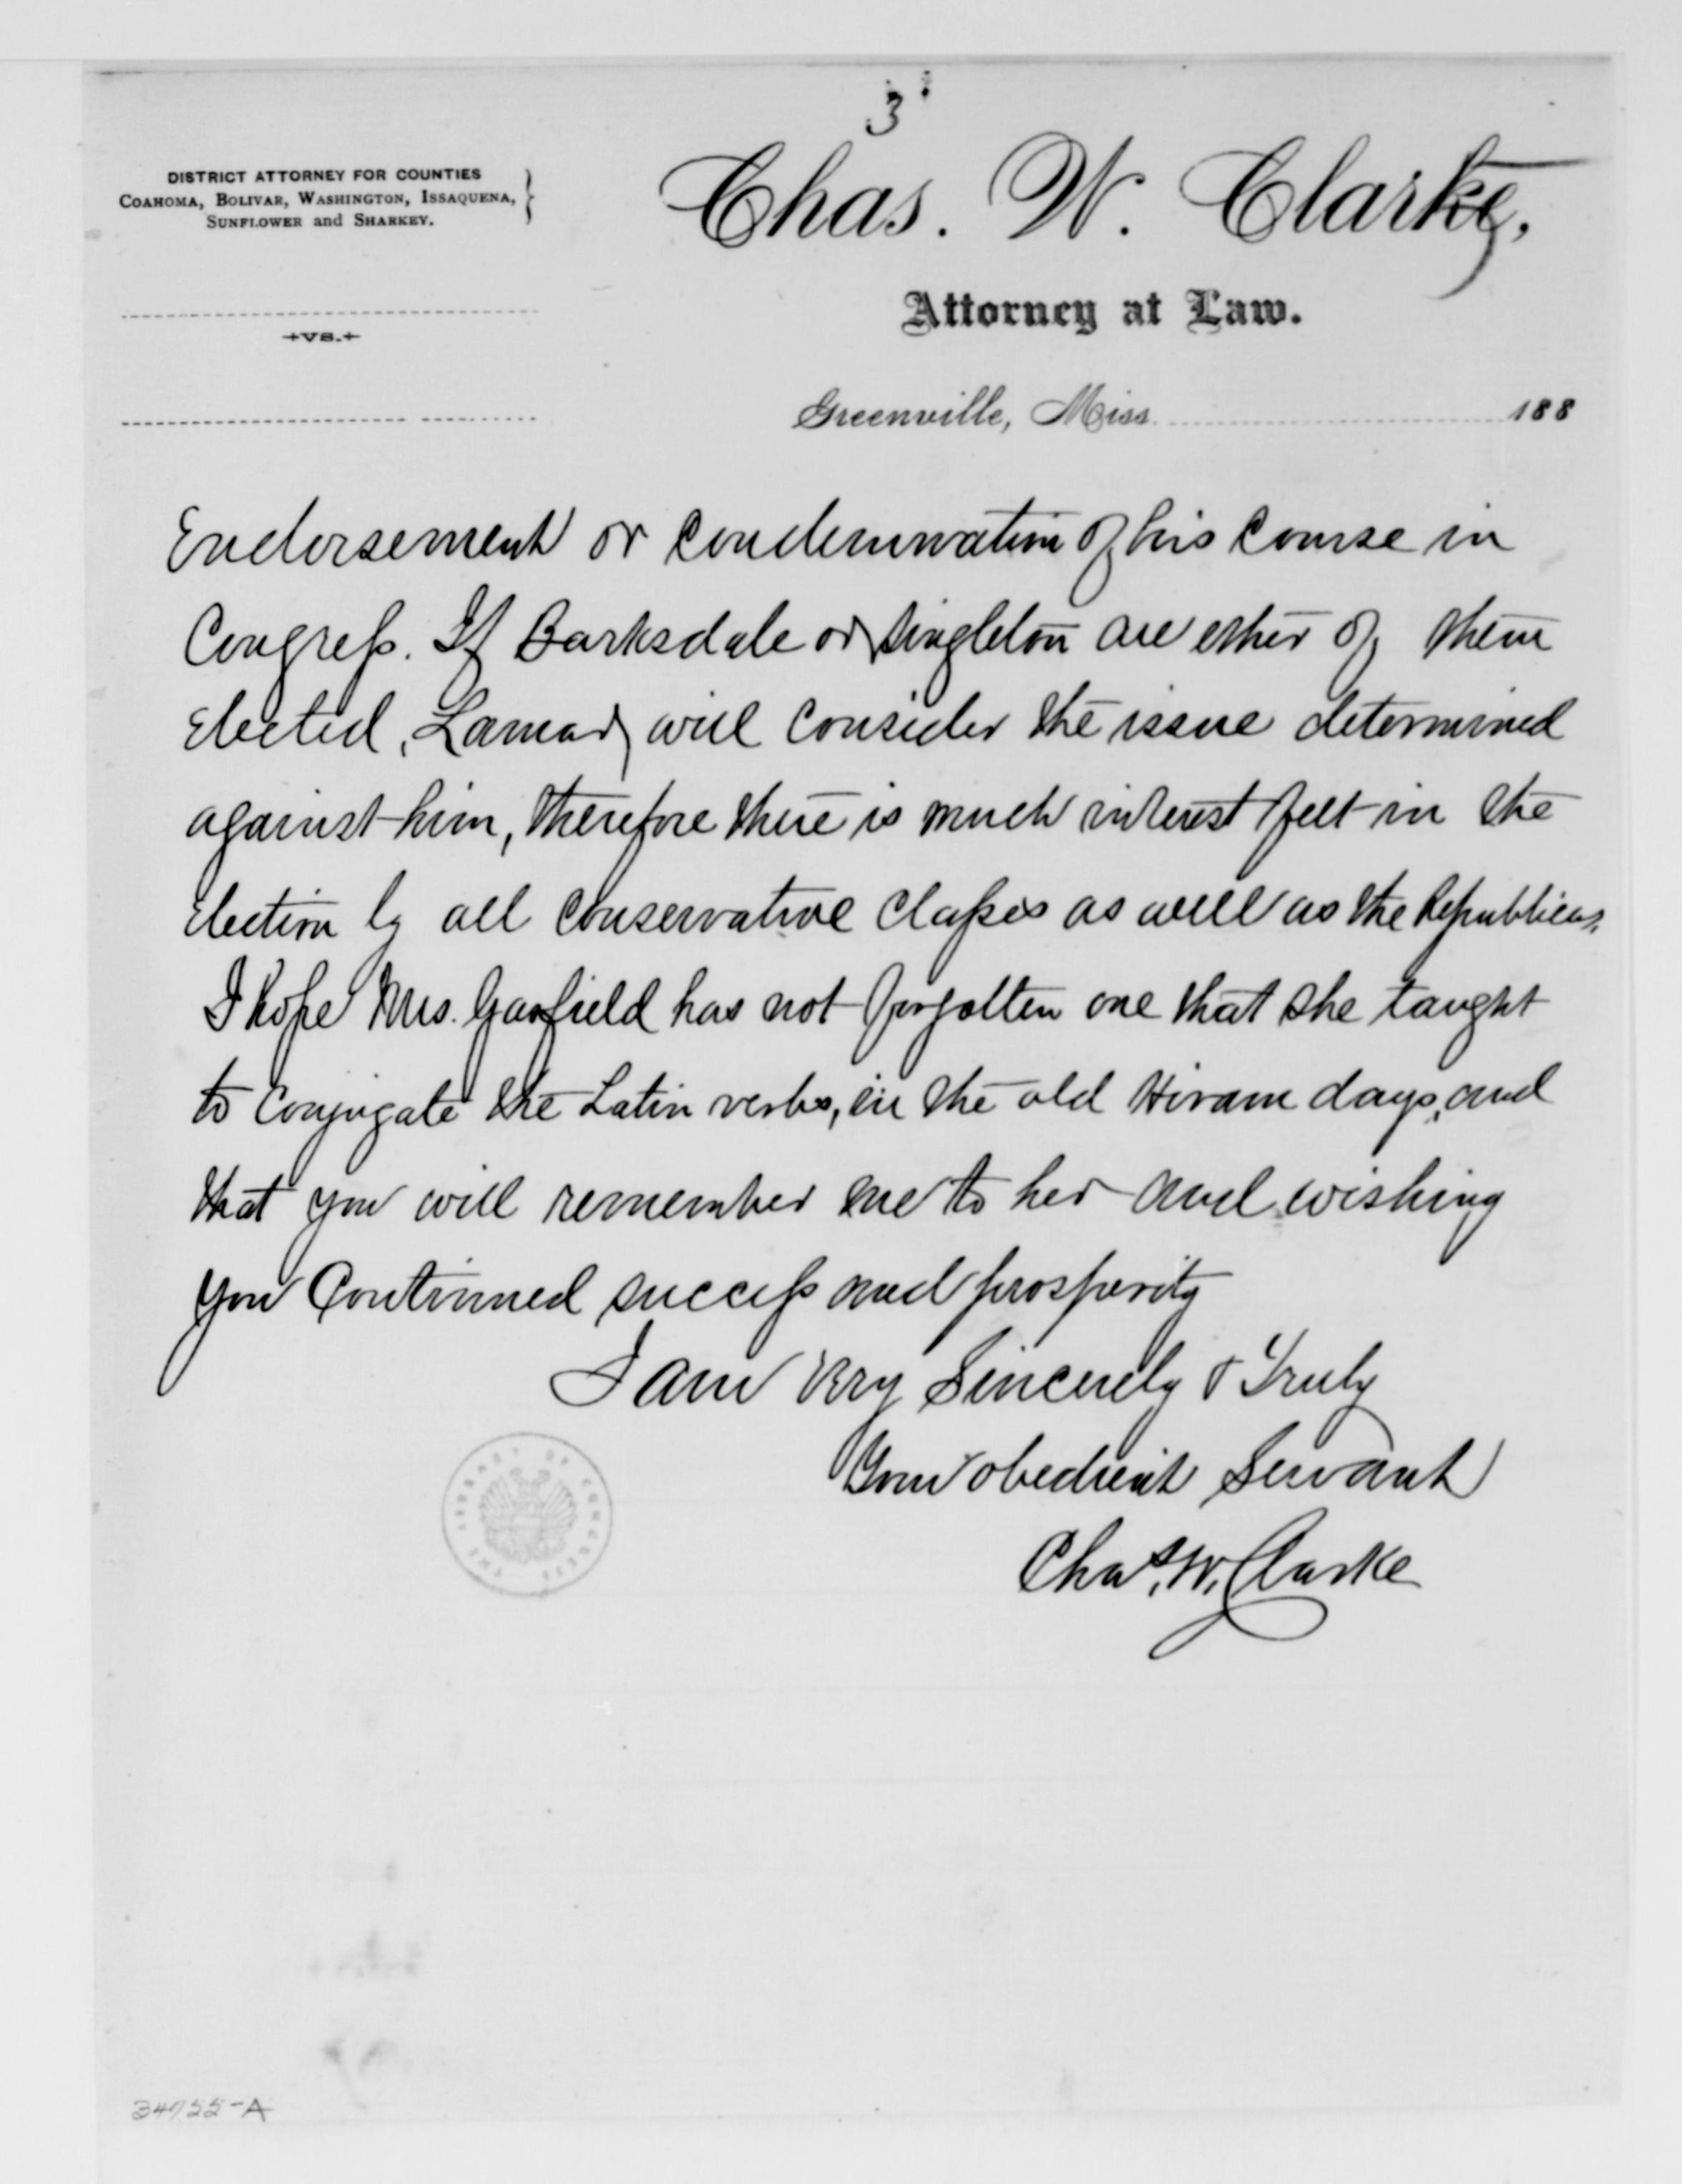 3
DISTRICT ATTORNEY FOR COUNTIES
COAHOMA, BOLIVAR, WASHINGTON, ISSAQUENA,
SUNFLOWER and SHARKEY.
Chas. W. Clarke,
Attorney at Law.
vs.
Greenville, Miss. 188
Endorsement or Condemnation of his Course in
Congress. If Barksdale or Singleton are ether of them
elected, Lamar will consider the issue determined
against him, therefore there is much interest felt in the
election by all conservative classes as well as the Republicans.
I hope Mrs. Garfield has not forgotten one that she taught
to conjugate the Latin verbs, in the old Hiram days, and
that you will remember me to her and wishing
you Continued success and prosperity
I am Very Sincerely & Truly
Your obedient Servant
Chas. W. Clarke
THE LIBRARY OF CONGRESS
34755-A